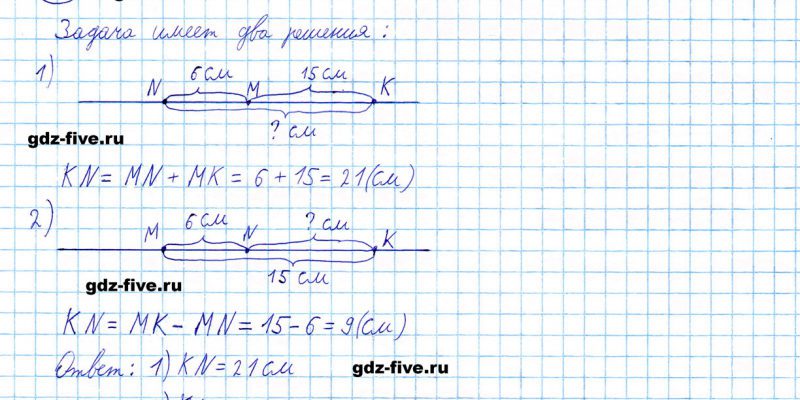 Задача имеет два решения:
1)
6 см 15 см
N M K
? см
gdz-five.ru
KN = MN + MK = 6 + 15 = 21 (см)
2)
6 см ? см
M N K
15 см
gdz-five.ru
KN = MK - MN = 15 - 6 = 9 (см)
Ответ: 1) KN = 21 см
gdz-five.ru